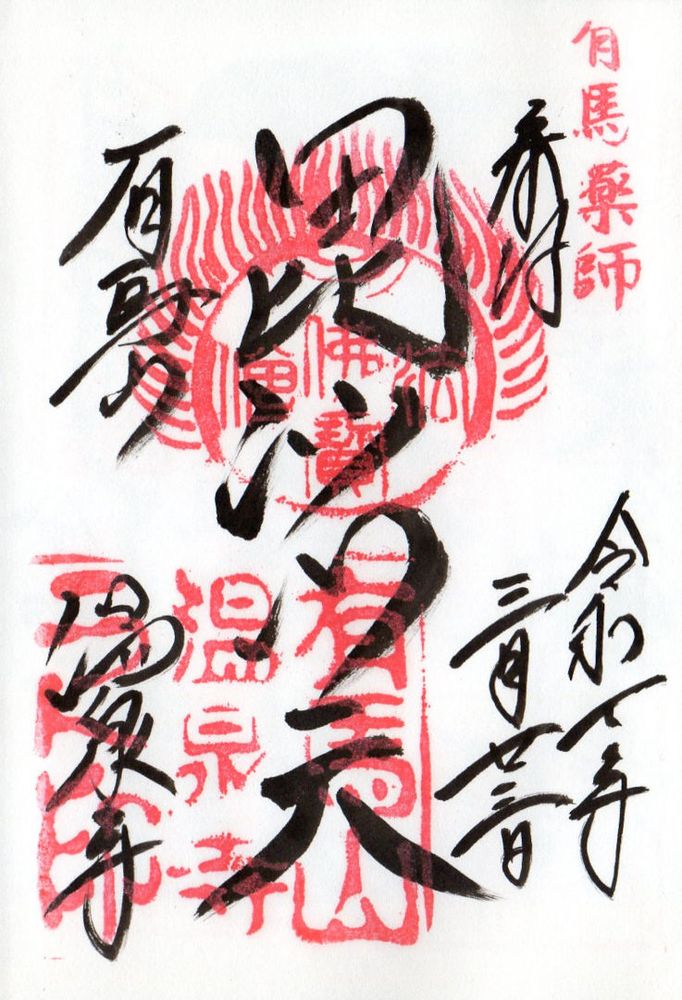 有馬藥師
奉拝
令和七年
三月廿三日
毘沙門天
有馬山
温泉寺
佛法僧寶
有馬山
温泉寺